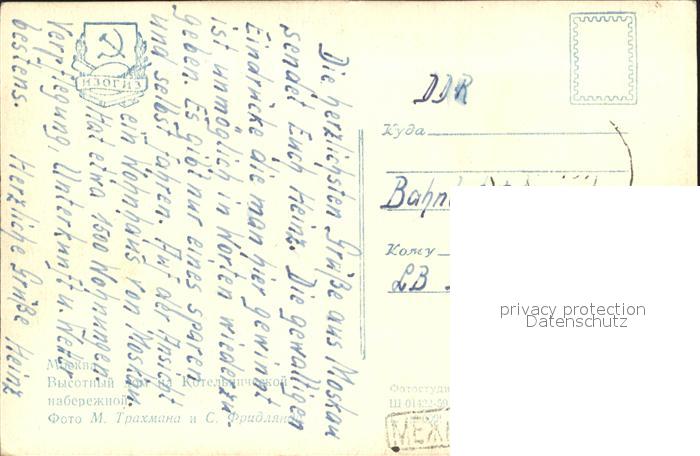 Die herzlichsten Grüße aus Moskau
sendet Euch Heinz. Die gewaltigen
Eindrücke die man hier gewinnt
ist unmöglich in Worten wiederzu-
geben. Es gibt nur eines sparen
und selbst fahren. Auf der Ansicht
ein Wohnhaus von Moskau.
Hat etwa 1500 Wohnungen
Verpflegung, Unterkunft u. Wetter
bestens. Herzliche Grüße Heinz
ИЗОГИЗ
Москва
Высотный дом на Котельнической
набережной
Фото М. Трахмана и С. Фридлянд
DDR
Куда
Кому
LB
Фотостуди
Ш 01422-59
privacy protection
Datenschutz